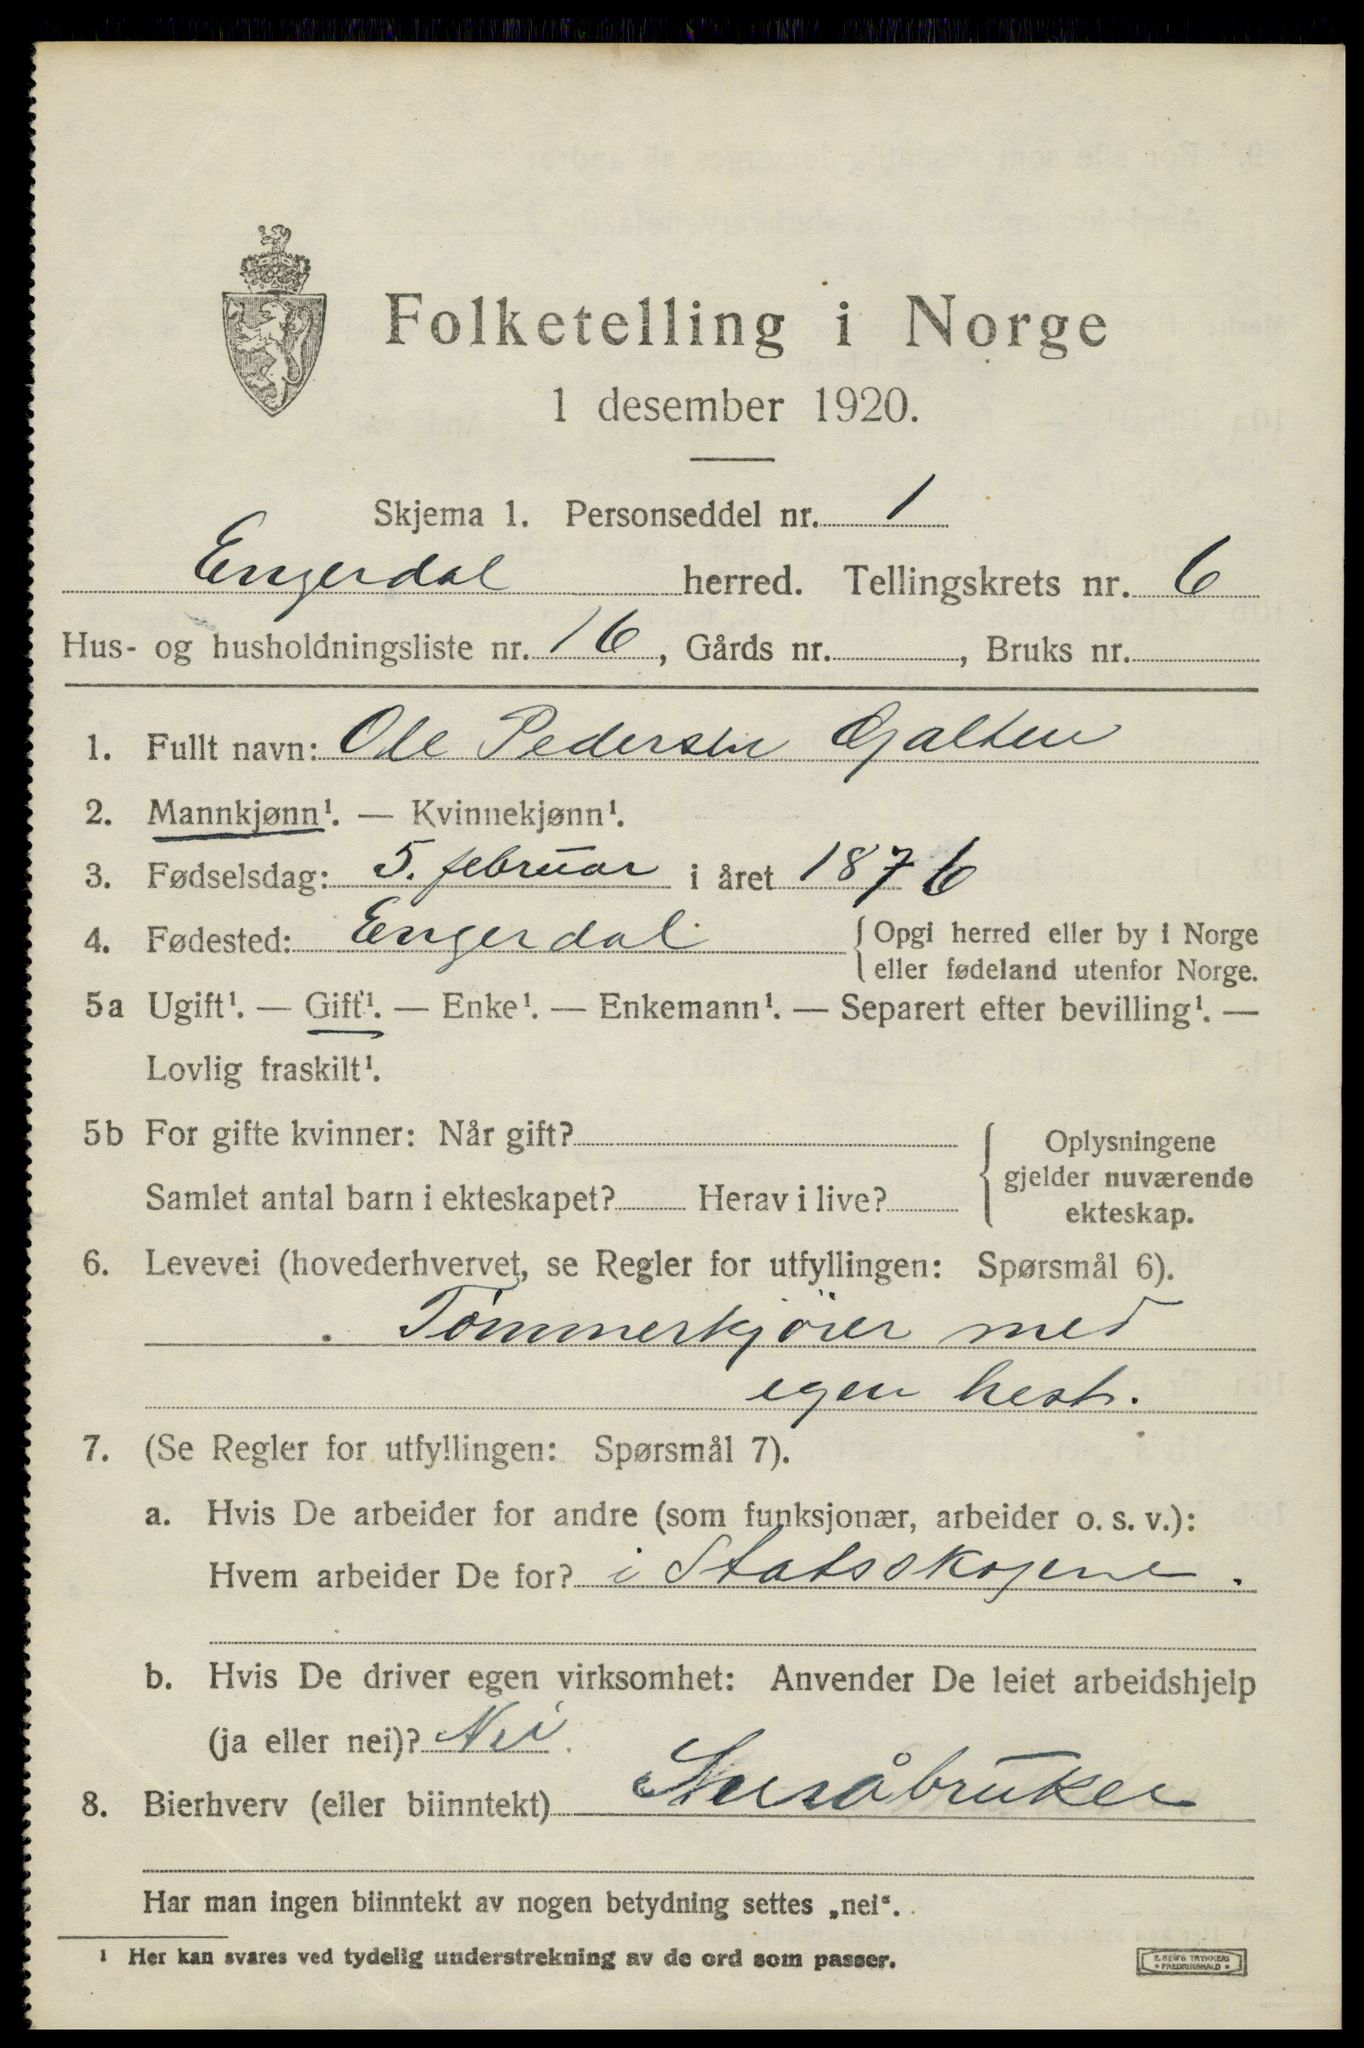 Folketelling i Norge
1 desember 1920.
Skjema 1. Personseddel nr. 1
Engerdal herred. Tellingskrets nr. 6
Hus- og husholdningsliste nr. 16, Gårds nr. , Bruks nr.
1. Fullt navn: Ole Pedersen Galten
2. Mannkjønn¹. — Kvinnekjønn¹.
3. Fødselsdag: 5. februar i året 1876
4. Fødested: Engerdal { Opgi herred eller by i Norge
eller fødeland utenfor Norge.
5a Ugift¹. — Gift¹. — Enke¹. — Enkemann¹. — Separert efter bevilling¹. —
Lovlig fraskilt¹.
5b For gifte kvinner: Når gift?
Samlet antal barn i ekteskapet? Herav i live?
Oplysningene
gjelder nuværende
ekteskap.
6. Levevei (hovederhvervet, se Regler for utfyllingen: Spørsmål 6).
Tømmerkjører med
egen hest.
7. (Se Regler for utfyllingen: Spørsmål 7).
a. Hvis De arbeider for andre (som funksjonær, arbeider o. s. v.):
Hvem arbeider De for? i Statsskogene.
b. Hvis De driver egen virksomhet: Anvender De leiet arbeidshjelp
(ja eller nei)? Nei.
8. Bierhverv (eller biinntekt) Småbruker
Har man ingen biinntekt av nogen betydning settes „nei“.
¹ Her kan svares ved tydelig understrekning av de ord som passer.
E. SEM'S TRYKKERI
FREDRIKSHALD